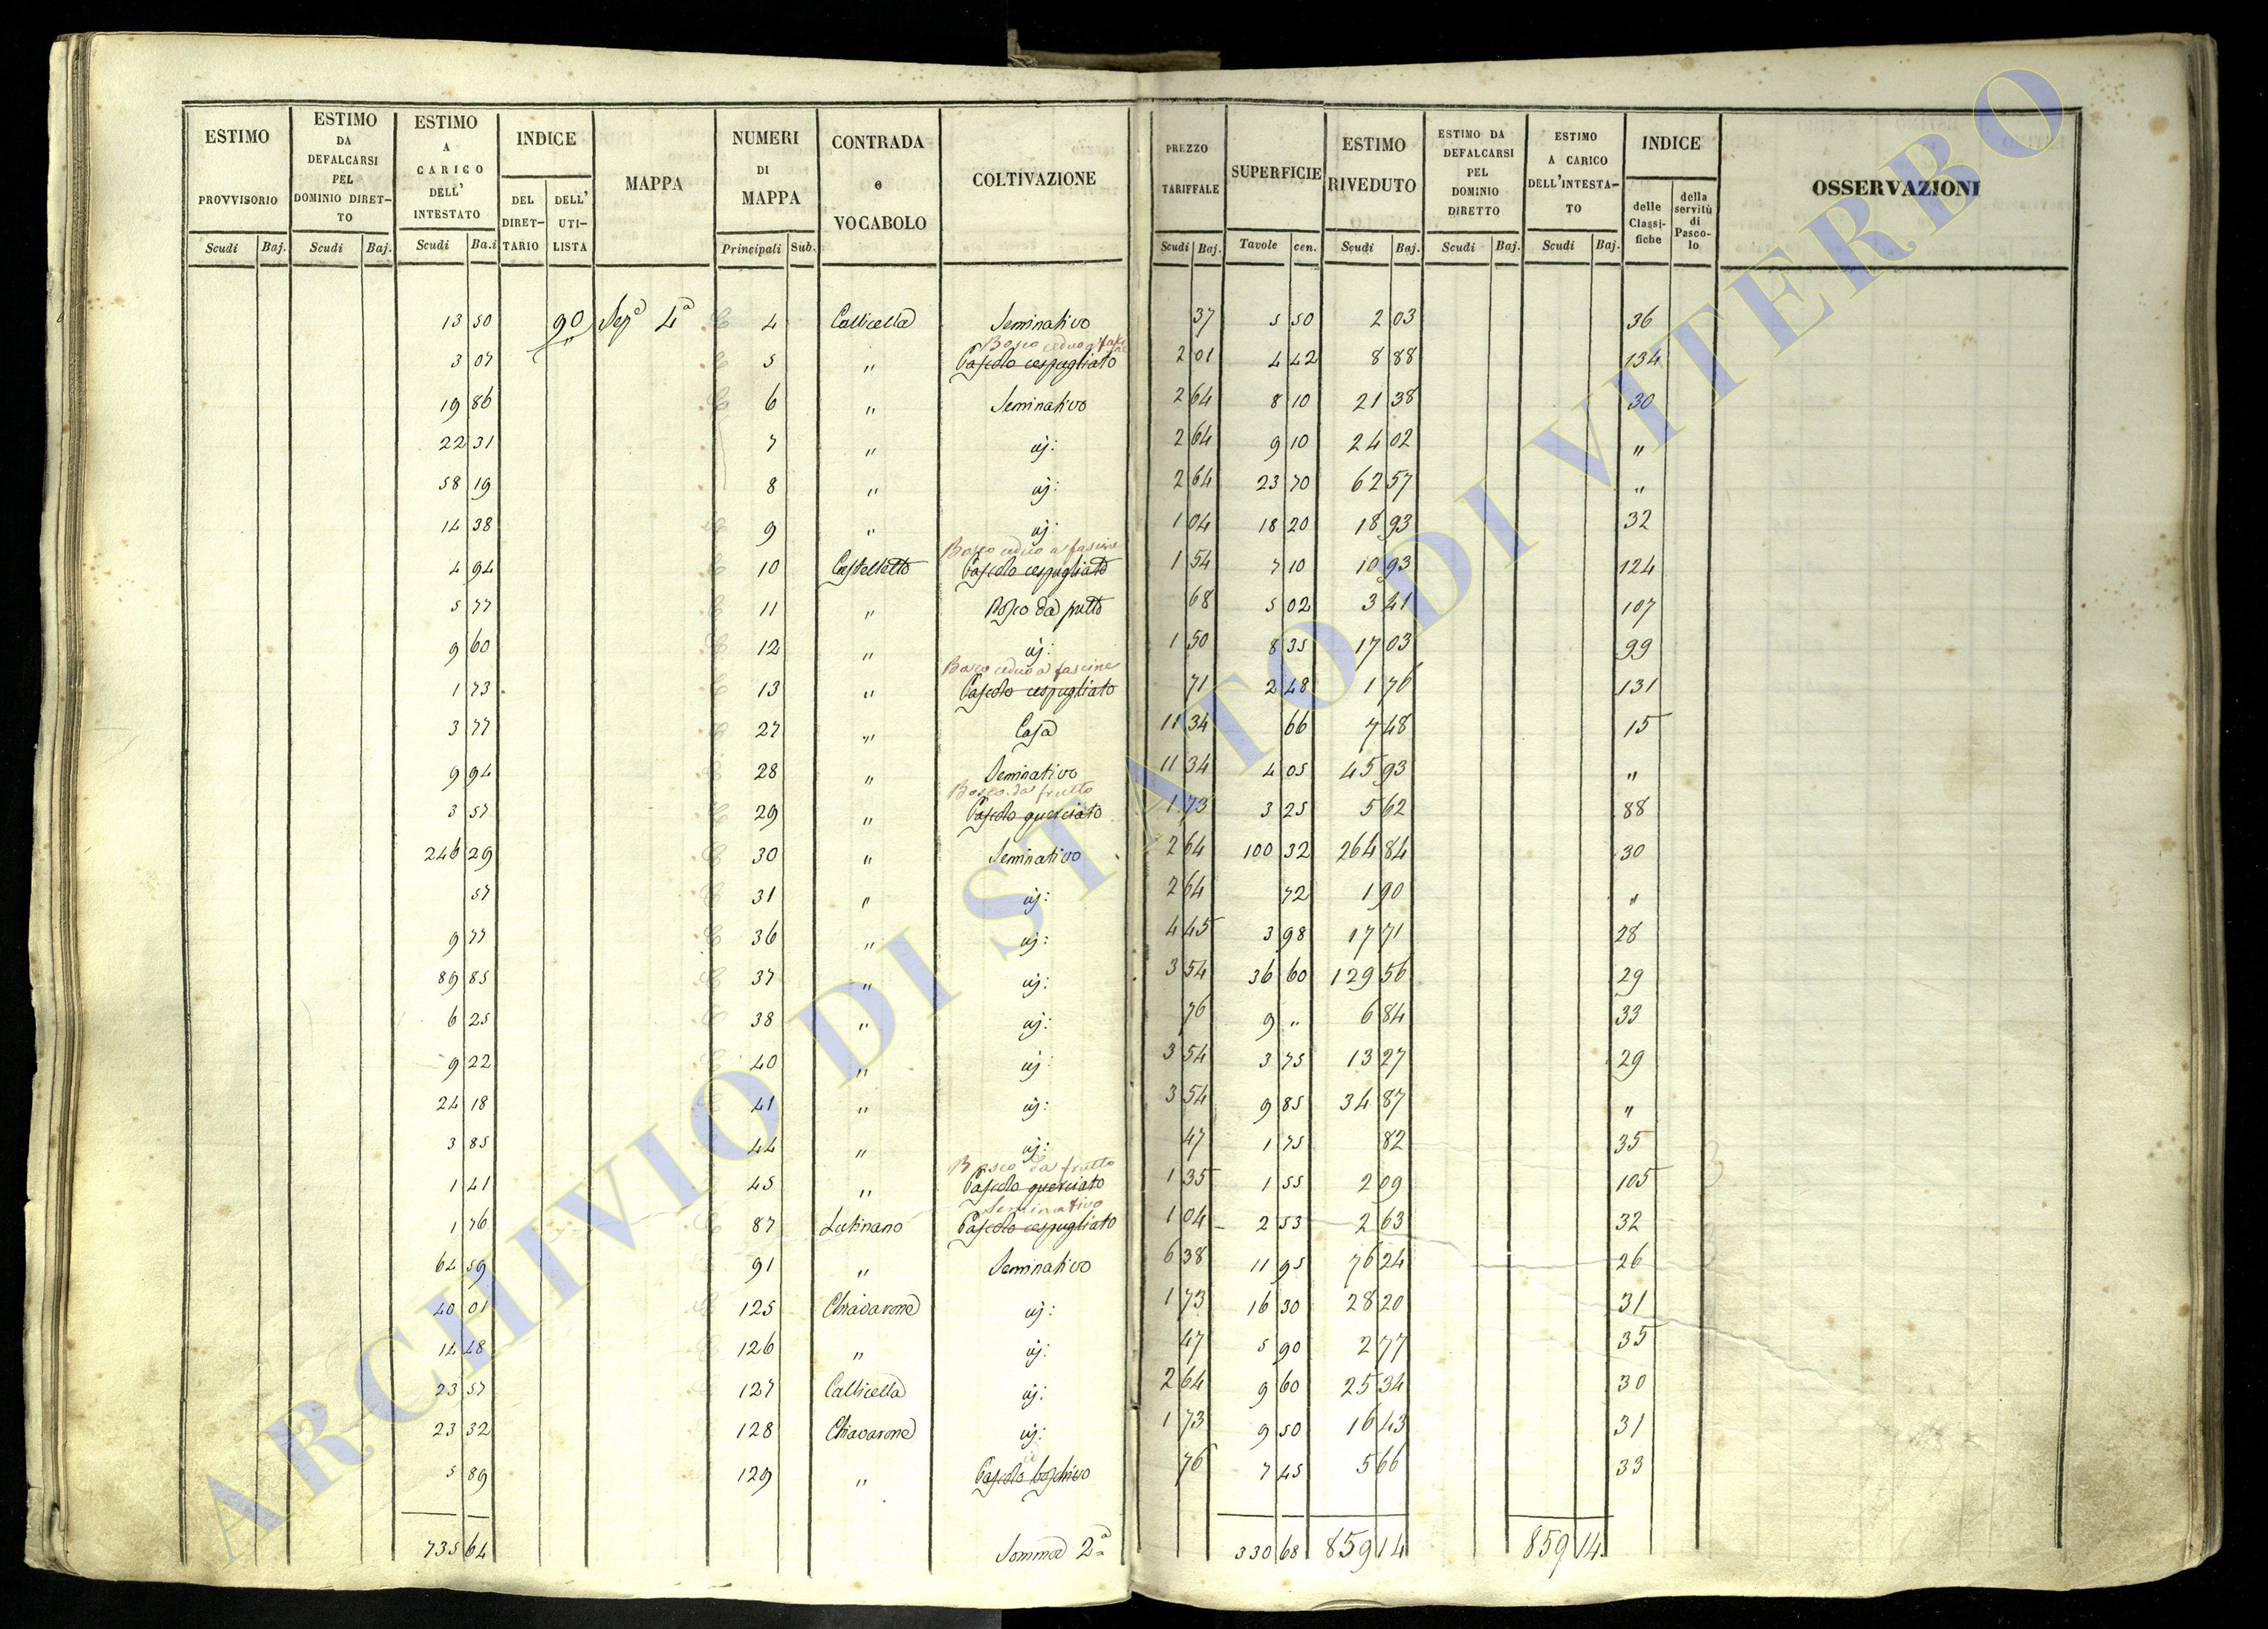 ESTIMO PROVVISORIO | ESTIMO DA DEFALCARSI PEL DOMINIO DIRETTO | ESTIMO A CARICO DELL' INTESTATO | INDICE | MAPPA | NUMERI DI MAPPA | CONTRADA e VOCABOLO | COLTIVAZIONE | PREZZO TARIFFALE | SUPERFICIE | ESTIMO RIVEDUTO | ESTIMO DA DEFALCARSI PEL DOMINIO DIRETTO | ESTIMO A CARICO DELL'INTESTATO | INDICE | OSSERVAZIONI
Scudi | Baj. | Scudi | Baj. | Scudi | Ba.i | DEL DIRETTARIO | DELL' UTILISTA | Principali | Sub. | Scudi | Baj. | Tavole | cen. | Scudi | Baj. | Scudi | Baj. | Scudi | Baj. | delle Classifiche | della servitù di Pascolo
13 50 | 90 | Sez.a 4a | 4 | Callicella | Seminativo | 37 | 5 50 | 2 03 | 36
Bosco ceduo a fascine
3 07 | 5 | " | Pascolo cespugliato | 2 01 | 4 42 | 8 88 | 134
19 86 | 6 | " | Seminativo | 2 64 | 8 10 | 21 38 | 30
22 31 | 7 | " | id: | 2 64 | 9 10 | 24 02 | "
58 19 | 8 | " | id: | 2 64 | 23 70 | 62 57 | "
14 38 | 9 | " | id: | 1 04 | 18 20 | 18 93 | 32
Bosco ceduo a fascine
4 94 | 10 | Castelletto | Pascolo cespugliato | 1 54 | 7 10 | 10 93 | 124
5 77 | 11 | " | Bosco da frutto | 68 | 5 02 | 3 41 | 107
9 60 | 12 | " | id: | 1 50 | 8 35 | 17 03 | 99
Bosco ceduo a fascine
1 73 | 13 | " | Pascolo cespugliato | 71 | 2 48 | 1 76 | 131
3 77 | 27 | " | Casa | 11 34 | 66 | 7 48 | 15
9 94 | 28 | " | Seminativo | 11 34 | 4 05 | 45 93 | "
Bosco da frutto
3 57 | 29 | " | Pascolo querciato | 1 73 | 3 25 | 5 62 | 88
246 29 | 30 | " | Seminativo | 2 64 | 100 32 | 264 84 | 30
57 | 31 | " | id: | 2 64 | 72 | 1 90 | "
9 77 | 36 | " | id: | 4 45 | 3 98 | 17 71 | 28
89 85 | 37 | " | id: | 3 54 | 36 60 | 129 56 | 29
6 25 | 38 | " | id: | 76 | 9 " | 6 84 | 33
9 22 | 40 | " | id: | 3 54 | 3 75 | 13 27 | 29
24 18 | 41 | " | id: | 3 54 | 9 85 | 34 87 | "
3 85 | 44 | " | id: | 47 | 1 75 | 82 | 35
Bosco da frutto
1 41 | 45 | " | Pascolo querciato | 1 35 | 1 55 | 2 09 | 105
Seminativo
1 76 | 87 | Lutinano | Pascolo cespugliato | 1 04 | 2 53 | 2 63 | 32
64 59 | 91 | " | Seminativo | 6 38 | 11 95 | 76 24 | 26
40 01 | 125 | Chiavarone | id: | 1 73 | 16 30 | 28 20 | 31
14 48 | 126 | " | id: | 47 | 5 90 | 2 77 | 35
23 57 | 127 | Callicella | id: | 2 64 | 9 60 | 25 34 | 30
23 32 | 128 | Chiavarone | id: | 1 73 | 9 50 | 16 43 | 31
5 89 | 129 | " | Pascolo boschivo | 76 | 7 45 | 5 66 | 33
735 64 | Somma 2a | 330 68 | 859 14 | 859 14
ARCHIVIO DI STATO DI VITERBO